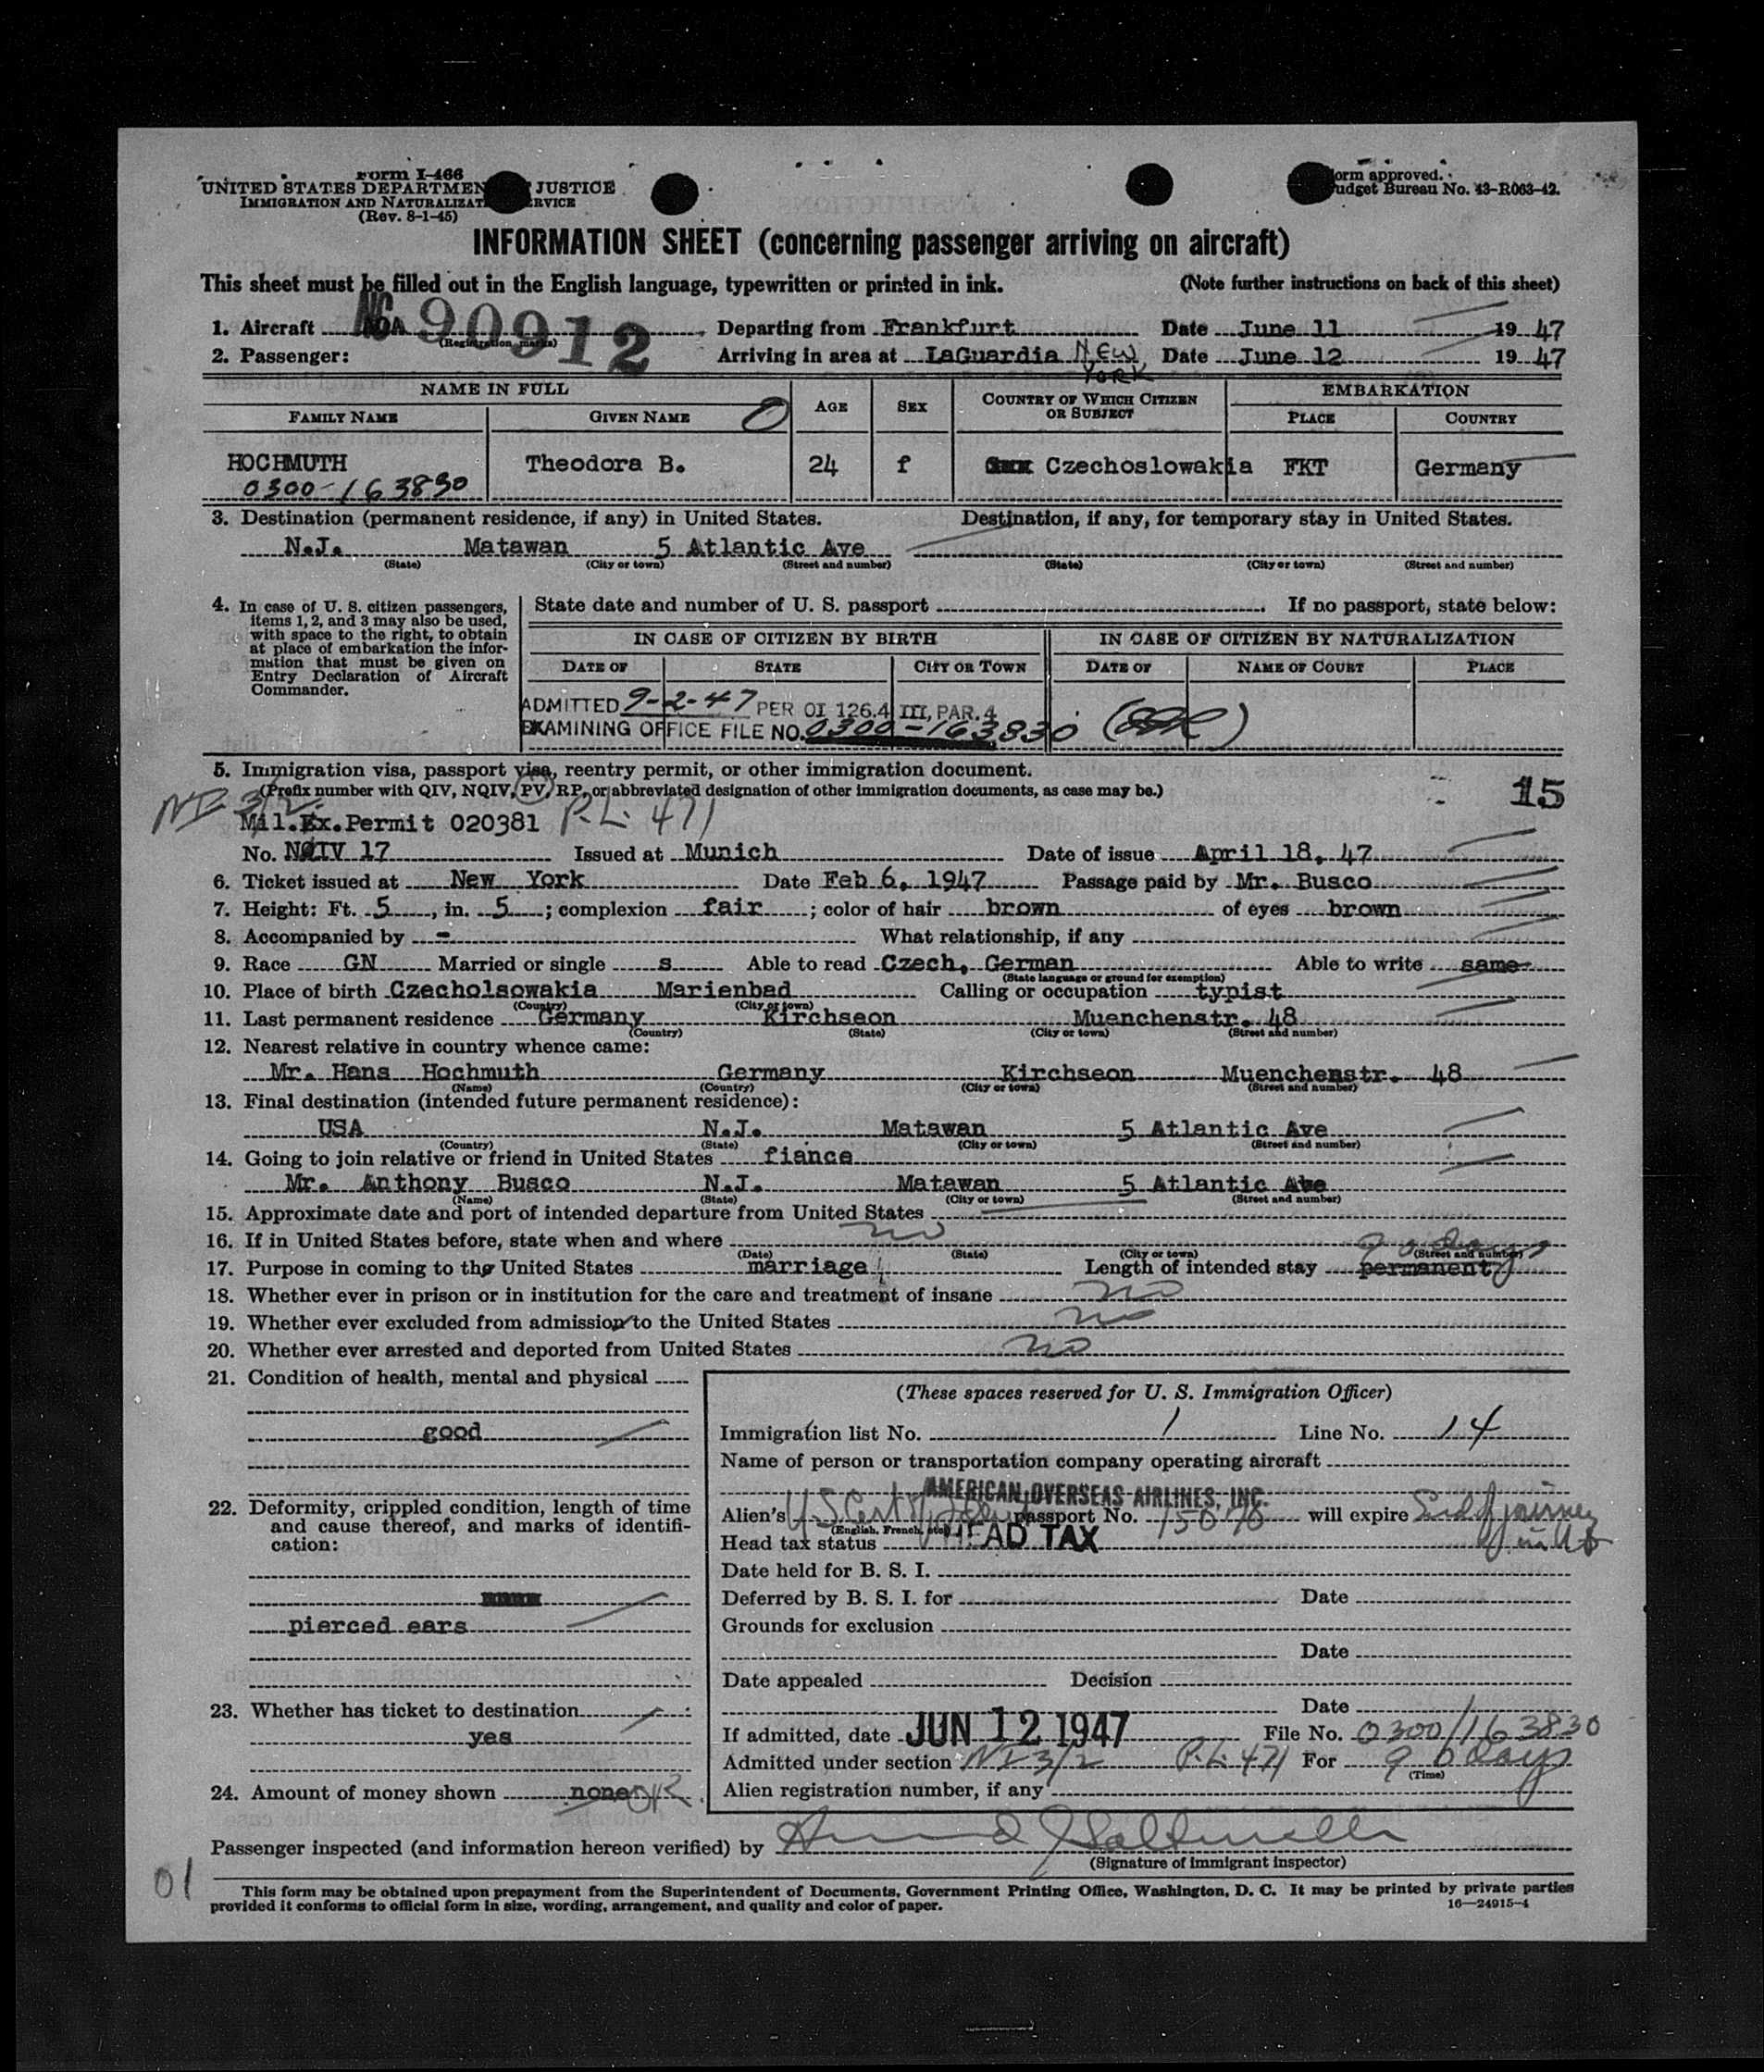 Form I-466
UNITED STATES DEPARTMENT JUSTICE
IMMIGRATION AND NATURALIZATION SERVICE
(Rev. 8-1-45)
Form approved.
Budget Bureau No. 43-R063-42.
INFORMATION SHEET (concerning passenger arriving on aircraft)
This sheet must be filled out in the English language, typewritten or printed in ink. (Note further instructions on back of this sheet)
1. Aircraft NC 90912 (Registration marks) Departing from Frankfurt Date June 11 19 47
2. Passenger: Arriving in area at LaGuardia NEW YORK Date June 12 19 47
NAME IN FULL AGE SEX COUNTRY OF WHICH CITIZEN OR SUBJECT EMBARKATION
FAMILY NAME GIVEN NAME PLACE COUNTRY
HOCHMUTH Theodora B. 24 f Czechoslowakia FKT Germany
0300-163830
3. Destination (permanent residence, if any) in United States. Destination, if any, for temporary stay in United States.
N.J. Matawan 5 Atlantic Ave
(State) (City or town) (Street and number) (State) (City or town) (Street and number)
4. In case of U. S. citizen passengers, items 1, 2, and 3 may also be used, with space to the right, to obtain at place of embarkation the information that must be given on Entry Declaration of Aircraft Commander.
State date and number of U. S. passport If no passport, state below:
IN CASE OF CITIZEN BY BIRTH IN CASE OF CITIZEN BY NATURALIZATION
DATE OF STATE CITY OR TOWN DATE OF NAME OF COURT PLACE
ADMITTED 9-2-47 PER OI 126.4 III, PAR. 4
EXAMINING OFFICE FILE NO. 0300-163830
5. Immigration visa, passport visa, reentry permit, or other immigration document.
(Prefix number with QIV, NQIV, PV, RP, or abbreviated designation of other immigration documents, as case may be.) 15
NI 3/2
Mil.Ex.Permit 020381 P.L. 471
No. NQIV 17 Issued at Munich Date of issue April 18, 47
6. Ticket issued at New York Date Feb 6, 1947 Passage paid by Mr. Busco
7. Height: Ft. 5, in. 5; complexion fair; color of hair brown of eyes brown
8. Accompanied by - What relationship, if any
9. Race GN Married or single s Able to read Czech, German Able to write same
(State language or ground for exemption)
10. Place of birth Czecholsowakia Marienbad Calling or occupation typist
(Country) (City or town)
11. Last permanent residence Germany Kirchseon Muenchenstr. 48
(Country) (State) (City or town) (Street and number)
12. Nearest relative in country whence came:
Mr. Hans Hochmuth Germany Kirchseon Muenchenstr. 48
(Name) (Country) (City or town) (Street and number)
13. Final destination (intended future permanent residence):
USA N.J. Matawan 5 Atlantic Ave
(Country) (State) (City or town) (Street and number)
14. Going to join relative or friend in United States fiance
Mr. Anthony Busco N.J. Matawan 5 Atlantic Ave
(Name) (State) (City or town) (Street and number)
15. Approximate date and port of intended departure from United States
16. If in United States before, state when and where no
(Date) (State) (City or town) (Street and number)
90 days
17. Purpose in coming to the United States marriage Length of intended stay permanent
18. Whether ever in prison or in institution for the care and treatment of insane no
19. Whether ever excluded from admission to the United States no
20. Whether ever arrested and deported from United States no
21. Condition of health, mental and physical
good
22. Deformity, crippled condition, length of time and cause thereof, and marks of identification:
pierced ears
23. Whether has ticket to destination
yes
24. Amount of money shown none
(These spaces reserved for U. S. Immigration Officer)
Immigration list No. 1 Line No. 14
Name of person or transportation company operating aircraft
AMERICAN OVERSEAS AIRLINES, INC.
Alien's passport No. will expire
(English, French, etc.)
Head tax status HEAD TAX
Date held for B. S. I.
Deferred by B. S. I. for Date
Grounds for exclusion
Date
Date appealed Decision
Date
If admitted, date JUN 12 1947 File No. 0300/163830
Admitted under section NI-3/2 P.L. 471 For 90 days
(Time)
Alien registration number, if any
Passenger inspected (and information hereon verified) by
(Signature of immigrant inspector)
01
This form may be obtained upon prepayment from the Superintendent of Documents, Government Printing Office, Washington, D. C. It may be printed by private parties
provided it conforms to official form in size, wording, arrangement, and quality and color of paper. 16—24915-4